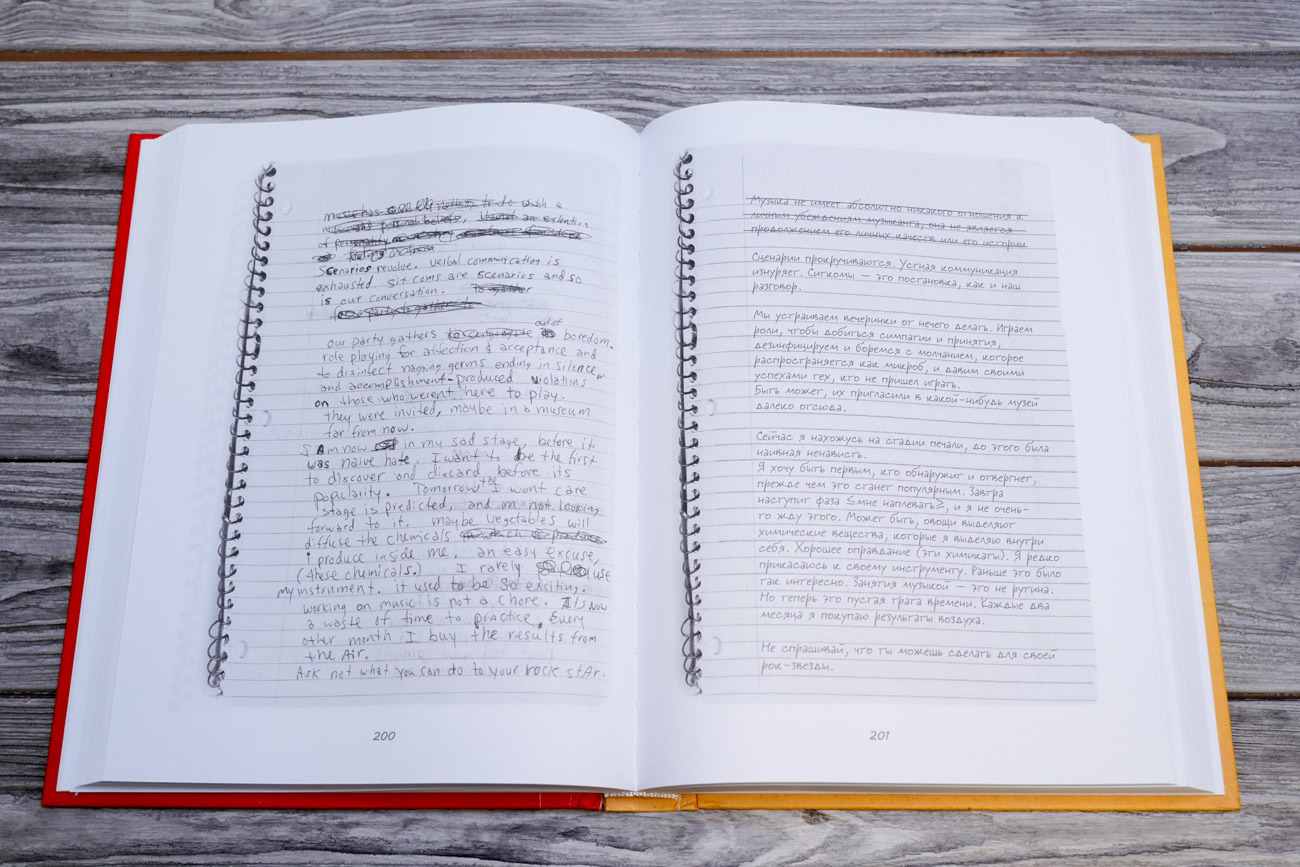 music has absolutely nothing to do with a
personal beliefs, an extention
of
Scenarios revolve. Verbal communication is
exhausted. Sit coms are scenarios and so
is our conversation. To gather
a party to gather to
out of
our party gathers boredom.
role playing for affection & acceptance and
to disinfect nagging germs ending in silence,
and accomplishment-produced violations
on those who werent here to play.
they were invited, maybe in a museum
far from now.
I Am now in my sad stage, before it
was naive hate, I want to be the first
to discover and discard, before its
popularity. Tomorrow the I wont care
stage is predicted, and im not looking
forward to it. maybe vegetables will
diffuse the chemicals
i produce inside me. an easy excuse,
(these chemicals.) I rarely use
my instrument. it used to be so exciting.
working on music is not a chore. Its now
a waste of time to practice. Every
other month I buy the results from
the Air.
Ask not what you can do to your rock stAr.
200
Музыка не имеет абсолютно никакого отношения к
личным убеждениям музыканта, она не является
продолжением его личных качеств или его истории
Сценарии прокручиваются. Устная коммуникация
изнуряет. Ситкомы — это постановка, как и наш
разговор.
Мы устраиваем вечеринки от нечего делать. Играем
роли, чтобы добиться симпатии и принятия,
дезинфицируем и боремся с молчанием, которое
распространяется как микроб, и давим своими
успехами тех, кто не пришел играть.
Быть может, их пригласили в какой-нибудь музей
далеко отсюда.
Сейчас я нахожусь на стадии печали, до этого была
наивная ненависть.
Я хочу быть первым, кто обнаружит и отвергнет,
прежде чем это станет популярным. Завтра
наступит фаза <мне наплевать>, и я не очень-
то жду этого. Может быть, овощи выделяют
химические вещества, которые я выделяю внутри
себя. Хорошее оправдание (эти химикаты). Я редко
прикасаюсь к своему инструменту. Раньше это было
так интересно. Занятия музыкой — это не рутина.
Но теперь это пустая трата времени. Каждые два
месяца я покупаю результаты воздуха.
Не спрашивай, что ты можешь сделать для своей
рок-звезды.
201